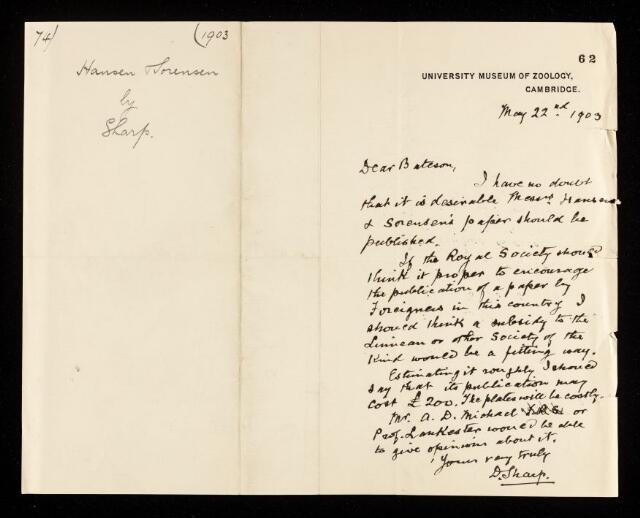 74)
(1903
Hansen & Sorensen
by
Sharp.
62
UNIVERSITY MUSEUM OF ZOOLOGY,
CAMBRIDGE.
May 22nd. 1903
Dear Bateson,
I have no doubt
that it is desirable Messrs Hansen
& Sorensen's paper should be
published.
If the Royal Society should
think it proper to encourage
the publication of a paper by
Foreigners in this country I
should think a subsidy to the
Linnean or other Society of the
kind would be a fitting way.
Estimating it roughly I should
say that its publication may
cost £200. The plates will be costly.
Mr. A. D. Michael or
Prof. Lankester would be able
to give opinions about it.
Yours very truly
D. Sharp.